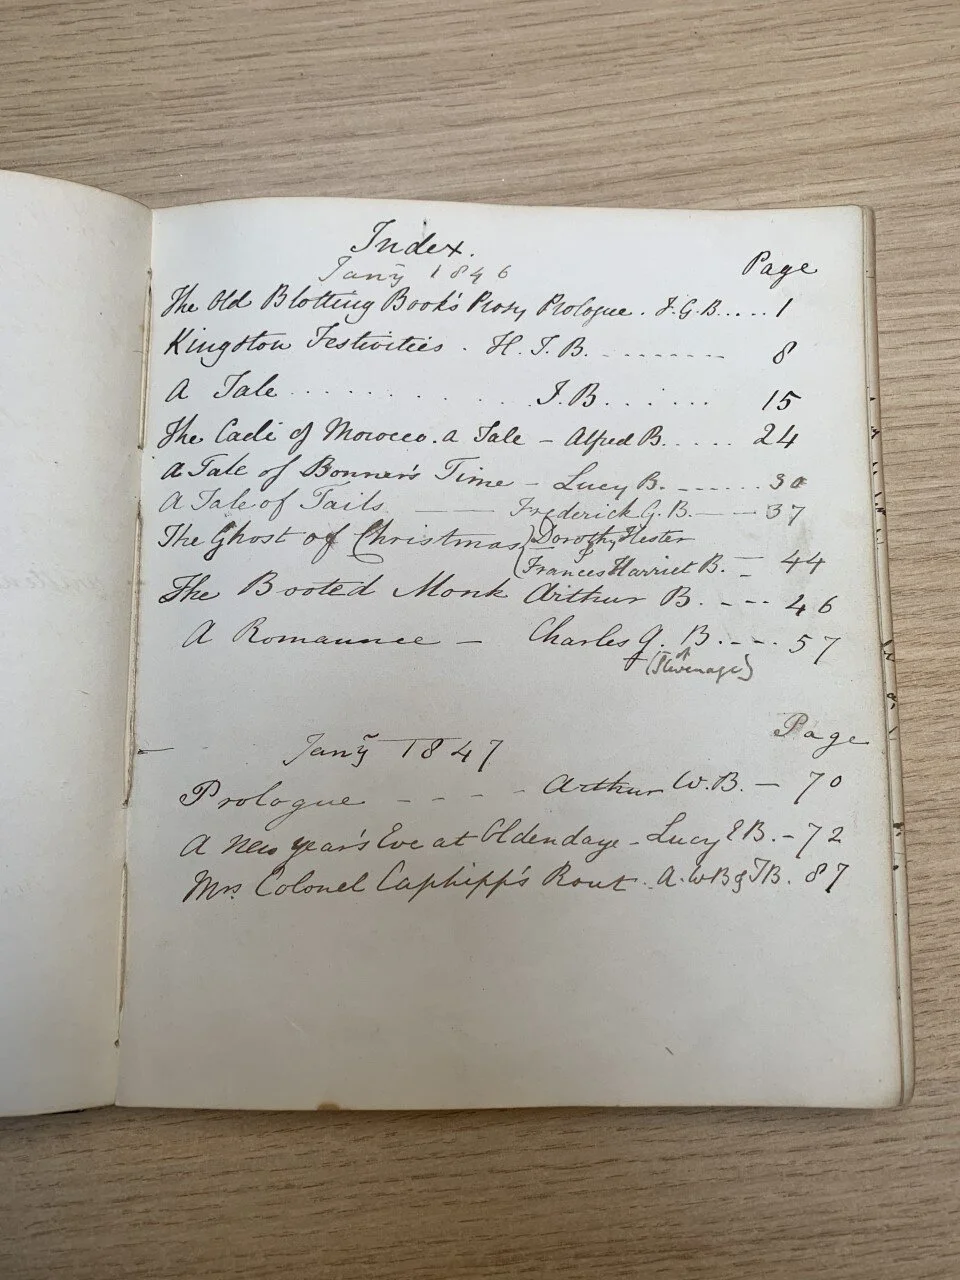 Index.
Jany 1846
Page
The Old Blotting Book's Prosy Prologue. F.G.B..... 1
Kingston Festivities. H.J.B. -------- 8
A Tale .......... J.B...... 15
The Cadi of Morocco. a Tale - Alfred B..... 24
A Tale of Bonner's Time - Lucy B. ------ 30
A Tale of Tails —— Frederick G.B. —-- 37
The Ghost of Christmas } Dorothy Hester
& Frances Harriet B. -- 44
The Booted Monk Arthur B. --- 46
A Romaunce — Charles J. B. --- 57
(of Stevenage)
Page
Jany 1847
Prologue ---- Arthur W.B. — 70
A New Year's Eve at Oldendaye - Lucy E B. - 72
Mrs. Colonel Caphipp's Rout. A.W B & J B. 87